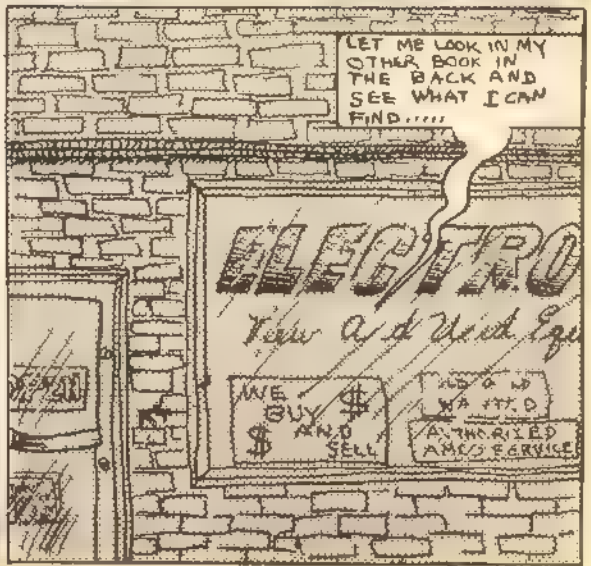 LET ME LOOK IN MY
OTHER BOOK IN
THE BACK AND
SEE WHAT I CAN
FIND.....
ELECTRO
New And Used Equ
OPEN
WE
BUY $
$ AND
SELL
AUTHORIZED
SERVICE